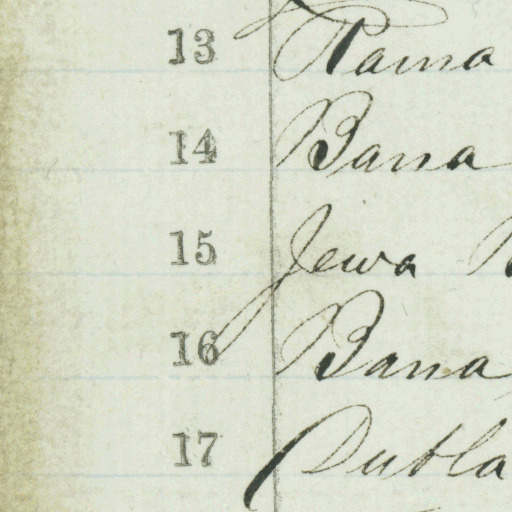 13 Rama
14 Bana
15 Jewa
16 Bana
17 Dubla